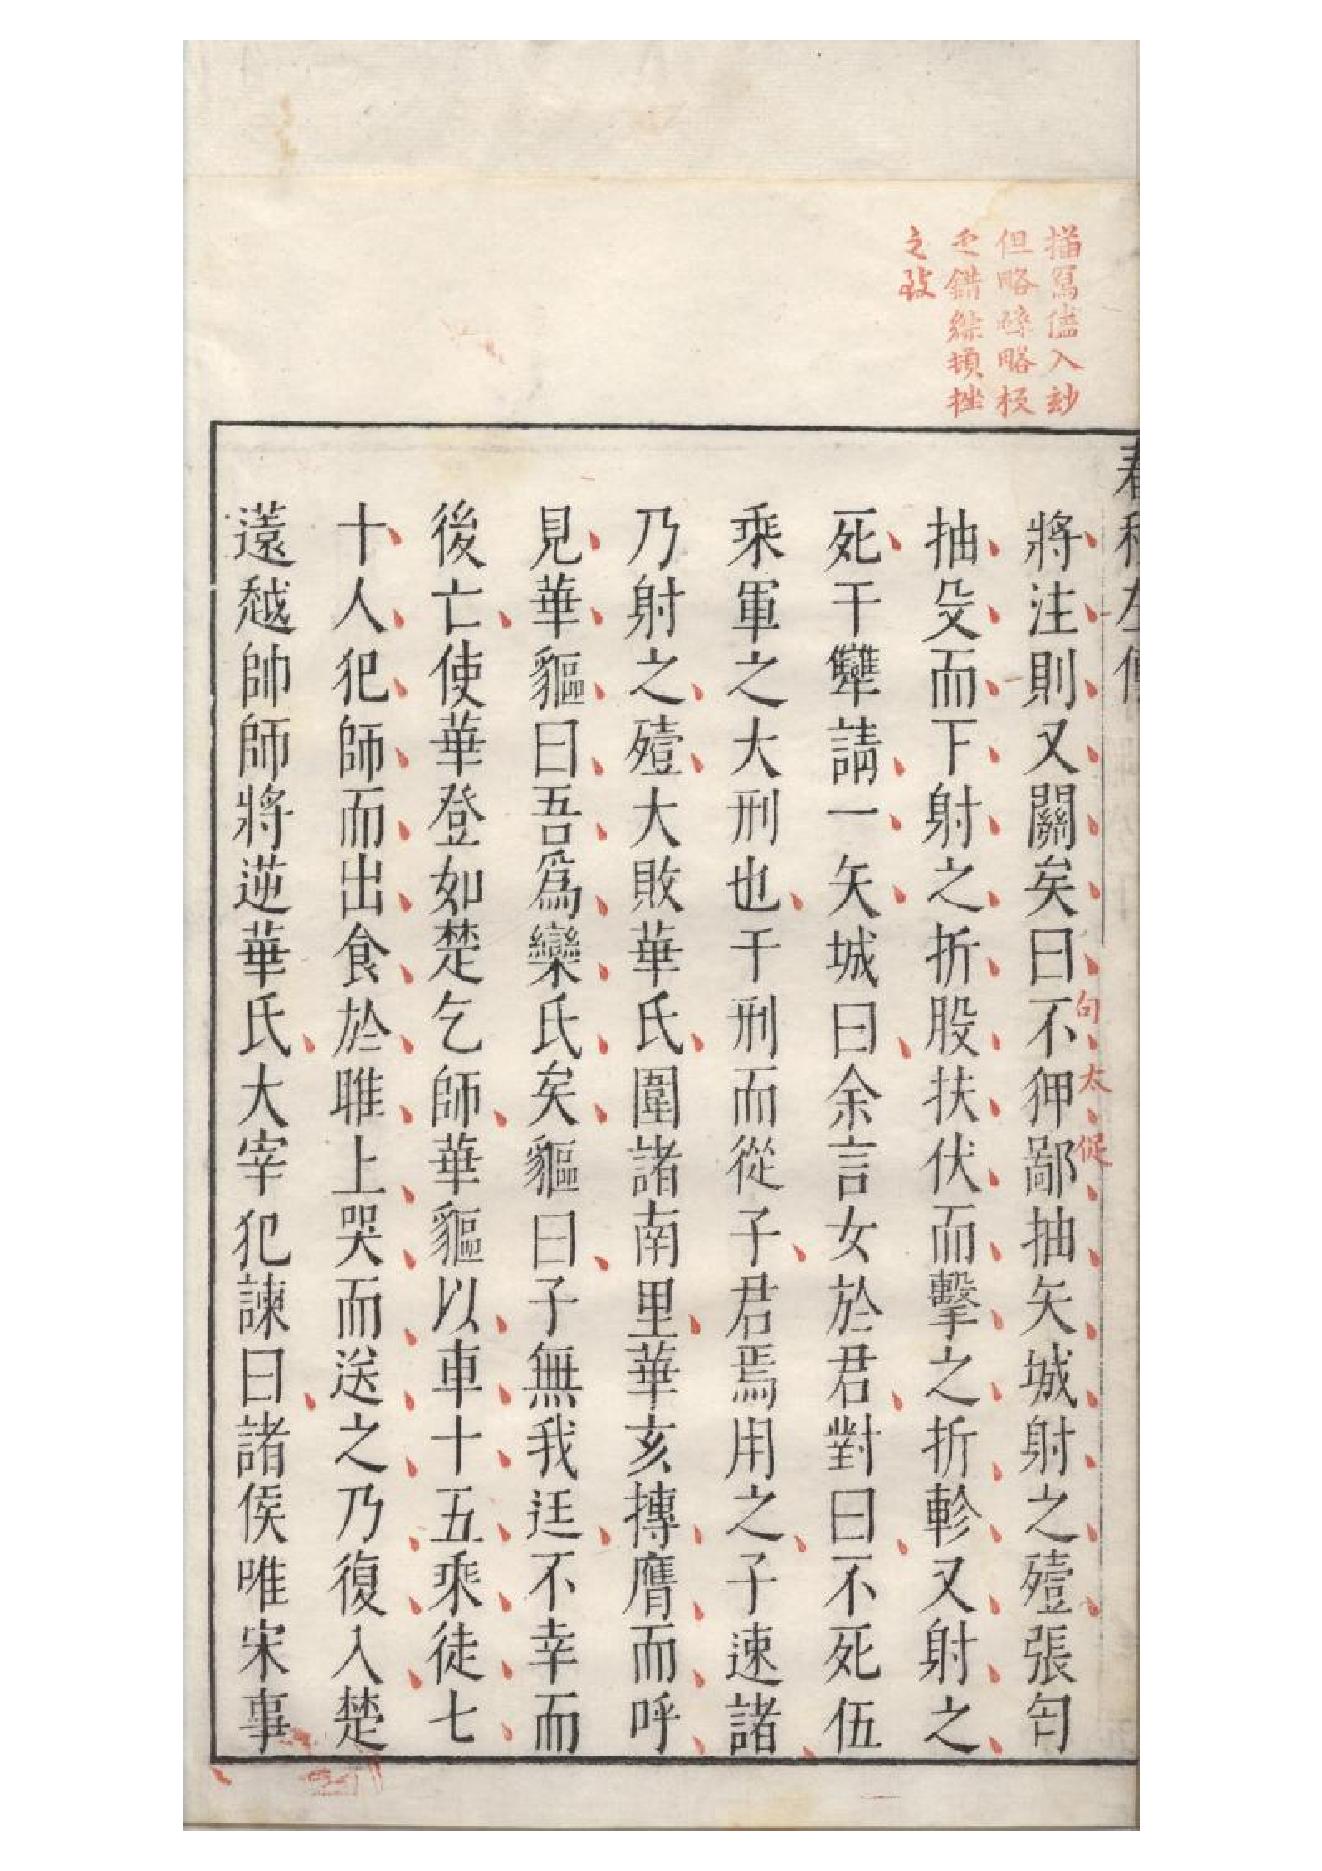 描寫儘入玅
但略碎略校
乏錯綜頓挫
之致
春秋左傳
將注則又關矣曰不狎鄙抽矢城射之殪張匄
句太促
抽殳而下射之折股扶伏而擊之折軫又射之
死干犫請一矢城曰余言女於君對曰不死伍
乘軍之大刑也干刑而從子君焉用之子速諸
乃射之殪大敗華氏圍諸南里華亥摶膺而呼
見華貙曰吾爲欒氏矣貙曰子無我迋不幸而
後亡使華登如楚乞師華貙以車十五乘徒七
十人犯師而出食於睢上哭而送之乃復入楚
薳越帥師將逆華氏大宰犯諫曰諸侯唯宋事